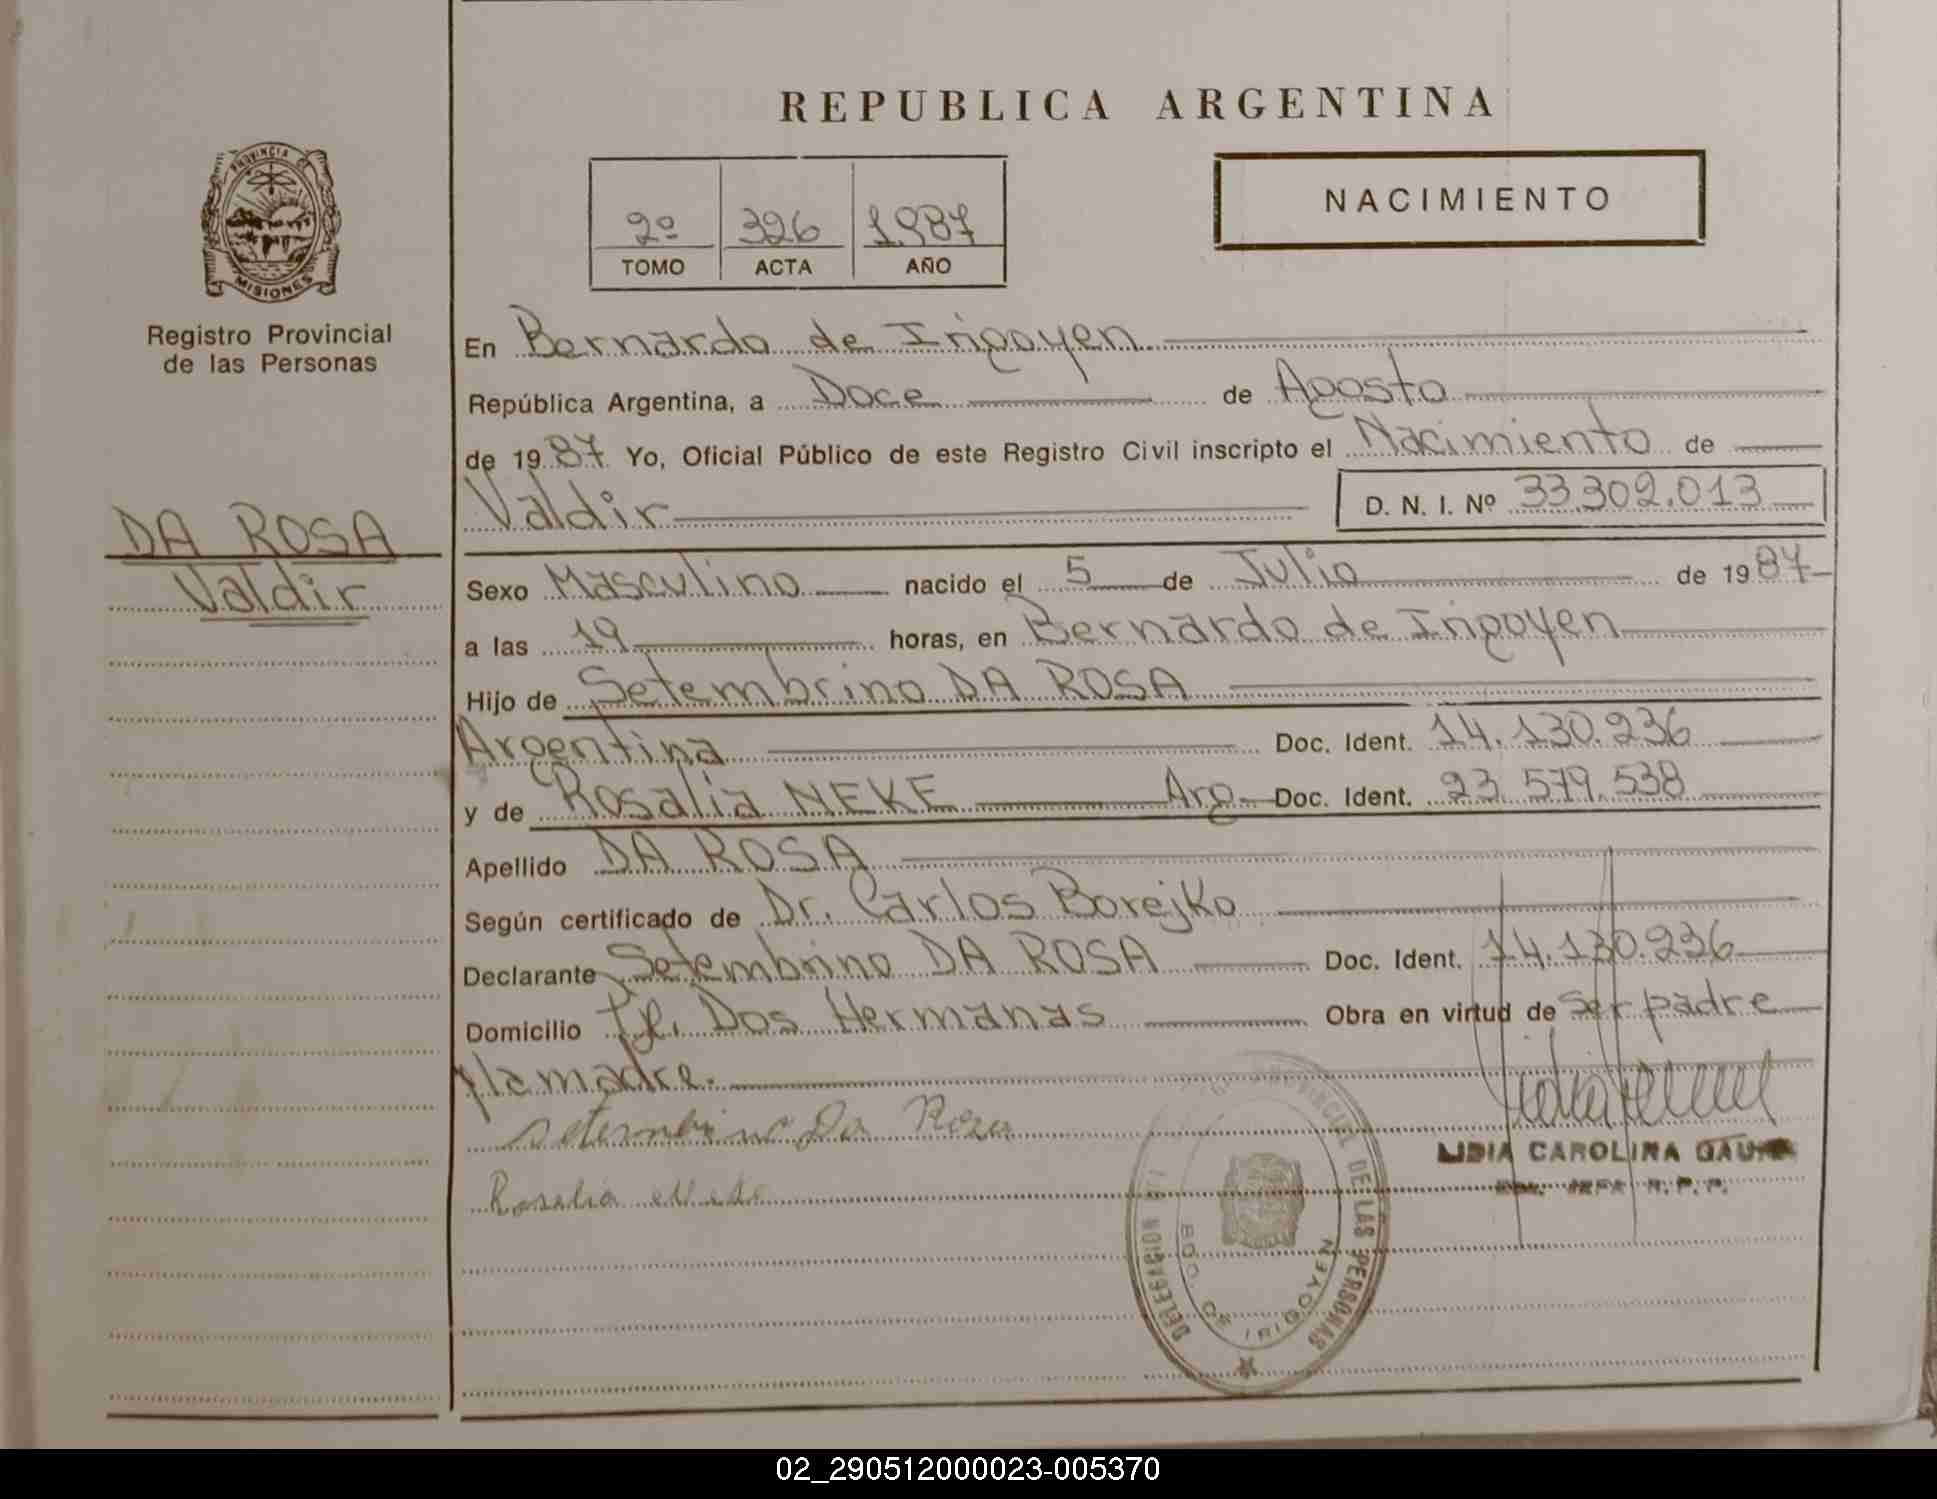 REPUBLICA ARGENTINA
PROVINCIA DE
MISIONES
Registro Provincial
de las Personas
2º 326 1987
TOMO ACTA AÑO
NACIMIENTO
En Bernardo de Irigoyen
República Argentina, a Doce de Agosto
de 1987 Yo, Oficial Público de este Registro Civil inscripto el Nacimiento de
Valdir D. N. I. Nº 33.302.013
DA ROSA
Valdir
Sexo Masculino nacido el 5 de Julio de 1987
a las 19 horas, en Bernardo de Irigoyen
Hijo de Setembrino DA ROSA
Argentina Doc. Ident. 14.130.236
y de Rosalia NEKE Arg Doc. Ident. 23.579.538
Apellido DA ROSA
Según certificado de Dr. Carlos Borejko
Declarante Setembrino DA ROSA Doc. Ident. 14.130.236
Domicilio Dos Hermanas Obra en virtud de ser padre
y la madre.
Setembrino Da Rosa
Rosalia
LIDIA CAROLINA
R. P. P.
PROVINCIAL DE LAS PERSONAS
DELEGACION
BDO. DE IRIGOYEN
02_290512000023-005370